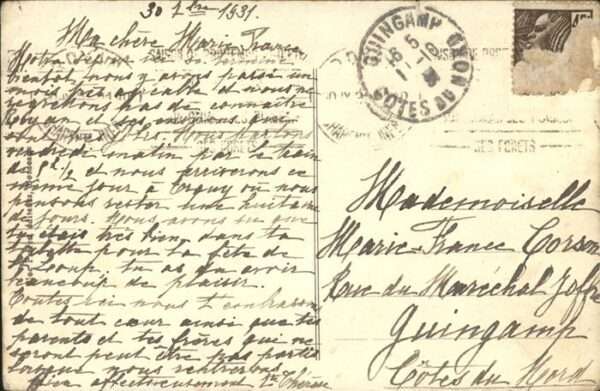 30 7bre 1931.
Ma chère Marie France
Notre séjour ici se termine
bientôt, nous y avons passé un
mois très agréable et nous ne
regrettons pas de connaître
Royan et ses environs qui
sont Nous partons
vendredi matin par le train
de 8h 1/2 et nous arriverons ce
même jour à où nous
pensons rester une huitaine
de jours. Nous avons vu que
tu étais très bien dans ta
toilette pour la fête de
St Loup. tu as du avoir
beaucoup de plaisir.
Toutes ici nous t'embrassons
de tout cœur ainsi que tes
parents et tes frères qui ne
seront peut être pas partis
lorsque nous rentrerons.
Bien affectueusement Tte Thérèse
GUINGAMP
COTES DU NORD
DES FORETS
Mademoiselle
Marie-France Corson
Rue du Maréchal Joffre
Guingamp
Côtes du Nord